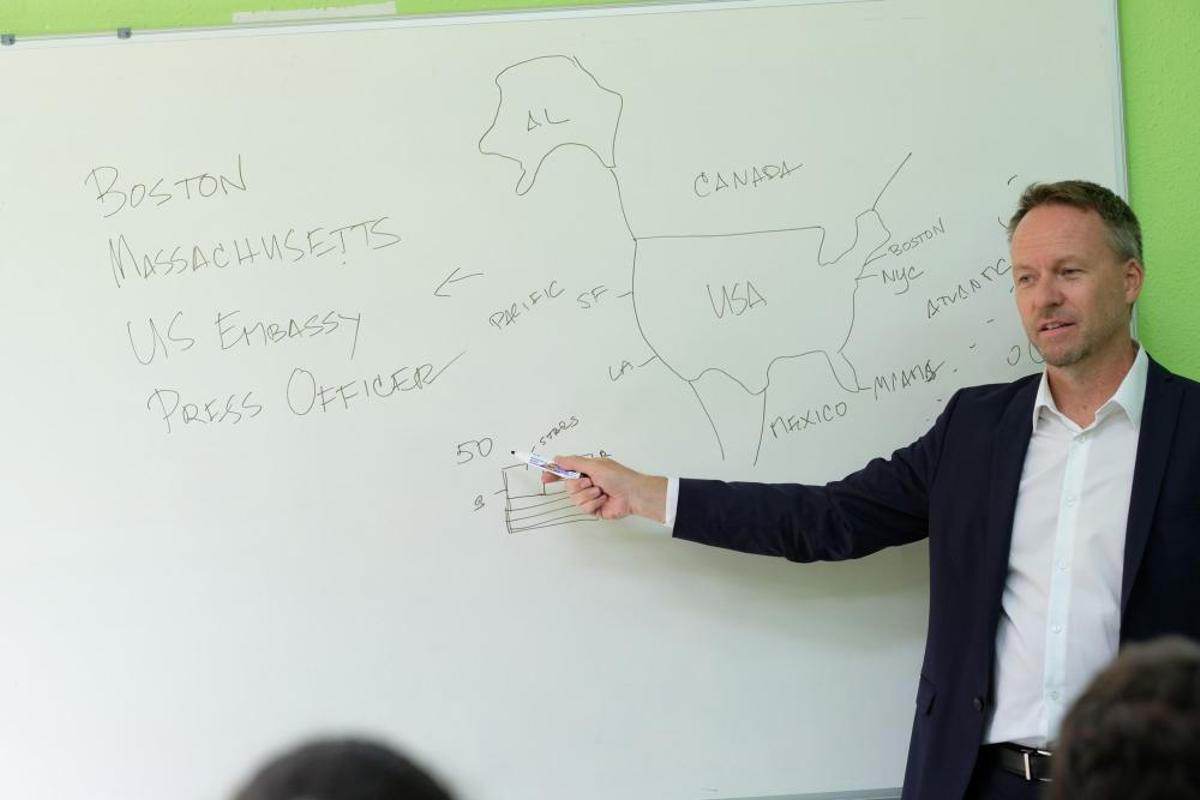 BOSTON
MASSACHUSETTS
US EMBASSY
PRESS OFFICER
AL
CANADA
USA
BOSTON
NYC
ATLANTIC
PACIFIC
SF
LA
MIAMI
MEXICO
50
STARS
B
R